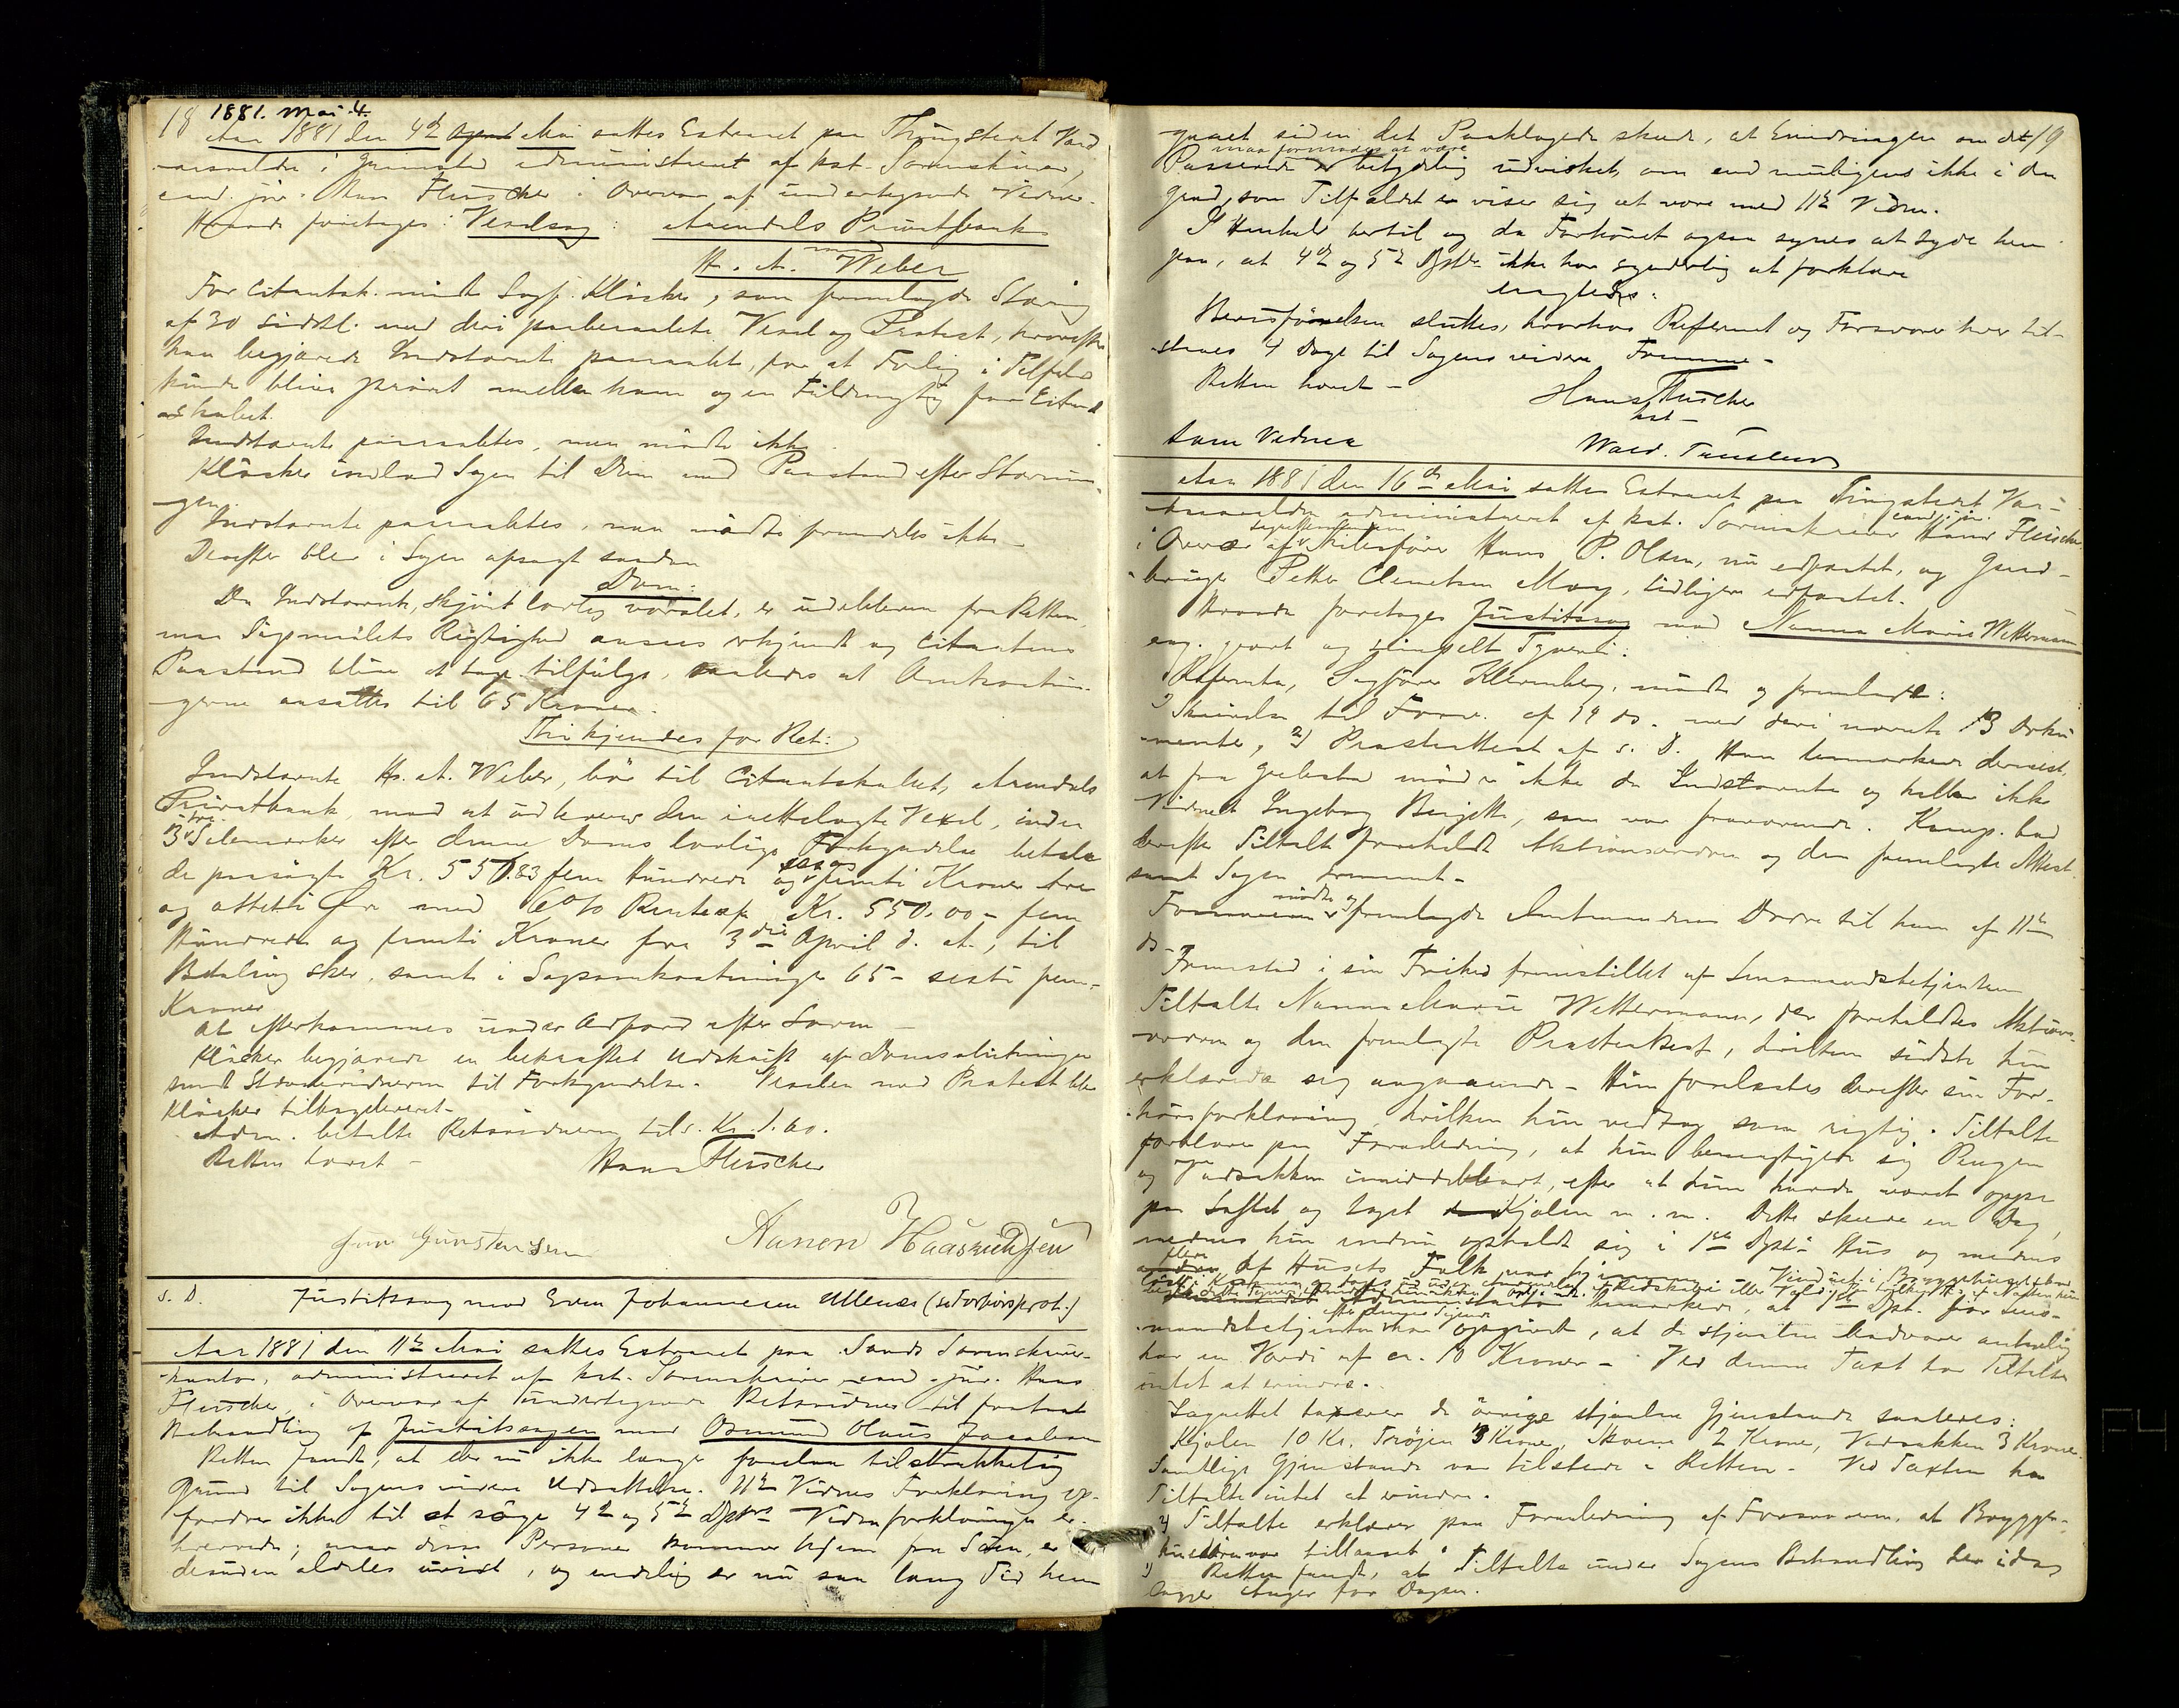 18 1881. Mai 4.
Aar 1881 den 4de April Mai sattes Extraret paa Thingstedet Vard
-aasveldre i Grimsted administreret af kst. Sorenskriver,
cand. jur. Hans Fleischer i Overvær af undertegnede Vidner.
Hvorda foretoges: Vexelsag: Arendals Privatbank
mod
H. A. Weber
For Citantsk. mødte Sagf. Kløcker, som fremlagde Stævning
af 30 sidstl. med deri paaberaabte Vexel og Protest, hvorefter
han begjærede Indstævnte paaraabt, for at Forlig i Tilfælde
kunde blive prøvet mellem ham og en Fuldmægtig for Citant
-skabet.
Indstævnte paaraabtes, men mødte ikke.
Kløcker indlod Sagen til Dom med Paastand efter Stævnin-
gen.
Indstævnte paaraabtes, men mødte fremdeles ikke -
Derefter blev i Sagen afsagt saadan
Dom:
Da Indstævnte, skjønt lovlig varslet, er udebleven fra Retten,
maa Søgsmaalets Rigtighed ansees erkjendt og Citantens
Paastand blive at tage tilfølge, saaledes at Omkostnin-
gerne ansættes til 65 Kroner.
Thi kjendes for Ret:
Indstævnte H. A. Weber, bør til Citantskabet, Arendals
Privatbank, mod at udlevere den irettelagte Vexel, inden
3 tre Solemærker efter denne Doms lovlige Forkyndelse betale
de paasøgte Kr. 550.83 fem Hundrede og femti Kroner tre
og otteti Øre med 6% Rente af Kr. 550.00 - fem
Hundrede og femti Kroner fra 3die April d. A., til
Betaling sker, samt i Sagsomkostninger 65 - sexti fem -
Kroner
At efterkommes under Adfærd efter Loven
Kløcker begjærede en bekræftet Udskrift af Domsslutningen
samt Stævnevidnerne til Forkyndelse. Vexelen med Protest blev
Kløcker tilbageleveret -
Adm. betalte Retsvidnerne tils. Kr. 1.60.
Retten hævet - Hans Fleischer
Gunstensen
s. D. Justitssag mod Even Johannessen Ullenæs (se Forhørsprot.)
Aar 1881 den 11te Mai sattes Extraret paa Sands Sorenskriver-
kontor, administreret af kst. Sorenskriver cand. jur. Hans
Fleischer, i Overvær af undertegnede Retsvidner til fortsat
Behandling af Justitssagen mod Osmund Olaus Jacobsen
Retten fandt, at der nu ikke længer forelaa tilstrækkelig
Grund til Sagens videre Udsættelse. 11te Vidnes Forklaring op-
fordrer ikke til at søge 4de og 5te Dpts Vidneforklaringer er-
hvervede; naar disse Personer kommer hjem fra Søen, er
desuden aldeles uvist, og endelig er nu saa lang Tid hen
gaaet siden det Paaklagede skede, at Erindringen om det 19
maa formodes at være
Passerede betydelig udvisket, om end muligens ikke i den
Grad, som Tilfældet viser sig at være med 11te Vidne.
I Henhold hertil og da Forhøret ogsaa synes at tyde hen
paa, at 4de og 5te Dpts. ikke har synderlig at forklare
eragtedes:
Bevisførelsen sluttes, hvorhos Referent og Forsvarer hver til-
staaes 4 Dage til Sagens videre Fremme -
Retten hævet - Hans Fleischer
kst -
som Vidner
Aar 1881 den 16de Mai sattes Extraret paa Thingstedet Var-
aasveldre administreret af kst. Sorenskriver cand. jur. Hans Fleischer
i Overvær af Hans P. Olsen, nu edfæstet, og Gaard-
bruger Petter Clemetsen Moy, tidligere edfæstet.
Hvorda foretoges Justitssag mod Nanna Marie Wettermann
ang. grovt og simpelt Tyveri.
Referenten, Sagfører Klemberg, mødte og fremlagde:
1) Skrivelse til Forsv. af 14 ds. med deri nævnte 13 Doku-
menter, 2) Præsteattest af s. D. Han bemærkede dernæst,
at fra mødte ikke da Indstævnte og heller ikke
Vidnet Ingeborg Birgitte, som var fraværende. Komp. bad
derefter Tiltalte foreholdt Aktionsordren og den fremlagte Attest
samt Sagen fremmet -
Forsvareren mødte og fremlagde Amtmandens Ordre til ham af 11te
ds -
Fremstod i sin Frihed fremstillet af Lensmandsbetjenten
Tiltalte Nanna Marie Wettermann, der foreholdtes Aktions-
ordren og den fremlagte Præsteattest, hvilken sidste hun
erklærede sig angaaende - Hun forelæstes derefter sin For-
hørsforklaring, hvilken hun vedtog som rigtig. Tiltalte
forklarer paa Foranledning, at hun bemægtigede sig Pengene
og Vadsækken umiddelbart, efter at hun havde været oppe
paa Loftet og taget Kjolen m. m. Dette skede en Dag,
medens hun endnu opholdt sig i 1ste Dpts Hus og medens
flere af Husets Folk var hjemme
bemærkede, at 1ste Dpt. for Lens-
mandsbetjenten har opgivet, at de stjaalne Madvarer antagelig
har en Værdi af ca. 10 Kroner - Ved denne Taxt har Tiltalte
intet at erindre.
Lagrettet taxerer de øvrige stjaalne Gjenstande saaledes:
Kjolen 10 Kr. Trøjen 3 Kroner, Skoene 2 Kroner, Vadsækken 3 Kroner
Samtlige Gjenstande var tilstede i Retten - Ved Taxten har
Tiltalte intet at erindre.
Tiltalte erklærer paa Foranledning af Forsvareren, at Brygger-
husdøren var tillaaset.
Retten fandt, at Tiltalte under Sagens Behandling her idag
lægger Anger for Dagen.